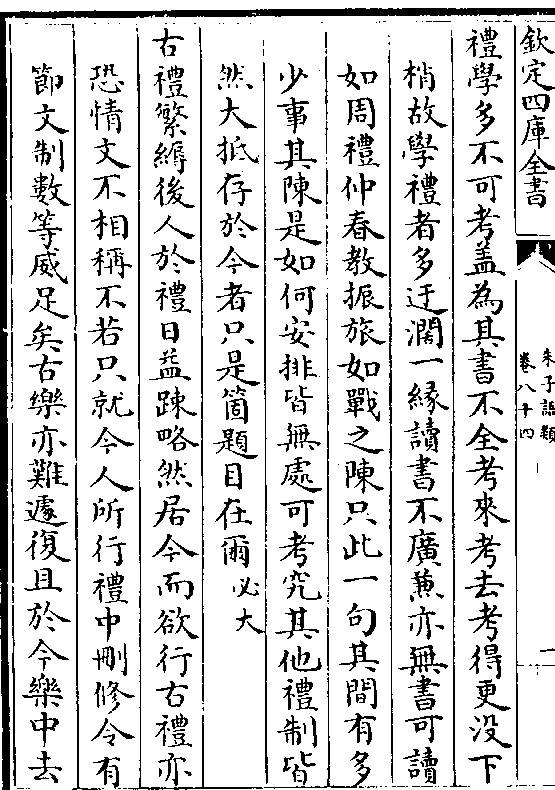 欽定四庫全書
朱子語類
卷八十四
一
禮學多不可考盖為其書不全考來考去考得更没下
梢故學禮者多迂濶一縁讀書不廣兼亦無書可讀
如周禮仲春教振旅如戰之陳只此一句其間有多
少事其陳是如何安排皆無處可考究其他禮制皆
然大抵存於今者只是箇題目在爾必大
古禮繁縟後人於禮日益踈略然居今而欲行古禮亦
恐情文不相稱不若只就今人所行禮中刪修令有
節文制數等威足矣古樂亦難遽復且於今樂中去